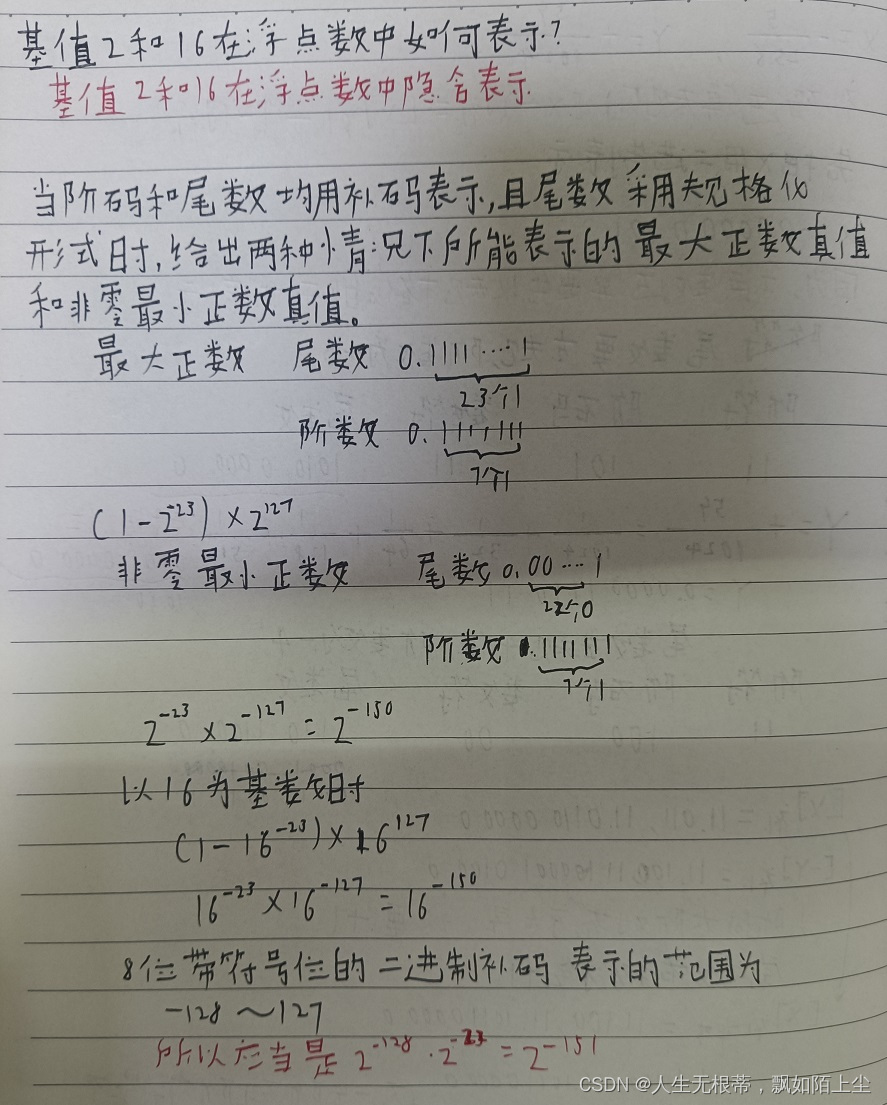 基值2和16在浮点数中如何可表示?
基值2和16在浮点数中隐含表示
当阶码和尾数均用补码表示,且尾数采用规格化
形式时,给出两种情况下所能表示的最大正数真值
和非零最小正数真值。
最大正数 尾数 0.1111……1
23个1
阶数 0.1111111
7个1
(1-2^-23)×2^127
非零最小正数 尾数 0.00…1
22个0
阶数 1111111
7个1
2^-23×2^-127=2^-150
以16为基数时
(1-16^-23)×16^127
16^-23×16^-127=16^-150
8位带符号位的二进制补码表示的范围为
-128~127
所以应当是 2^-128·2^-23=2^-151
CSDN @人生无根蒂,飘如陌上尘